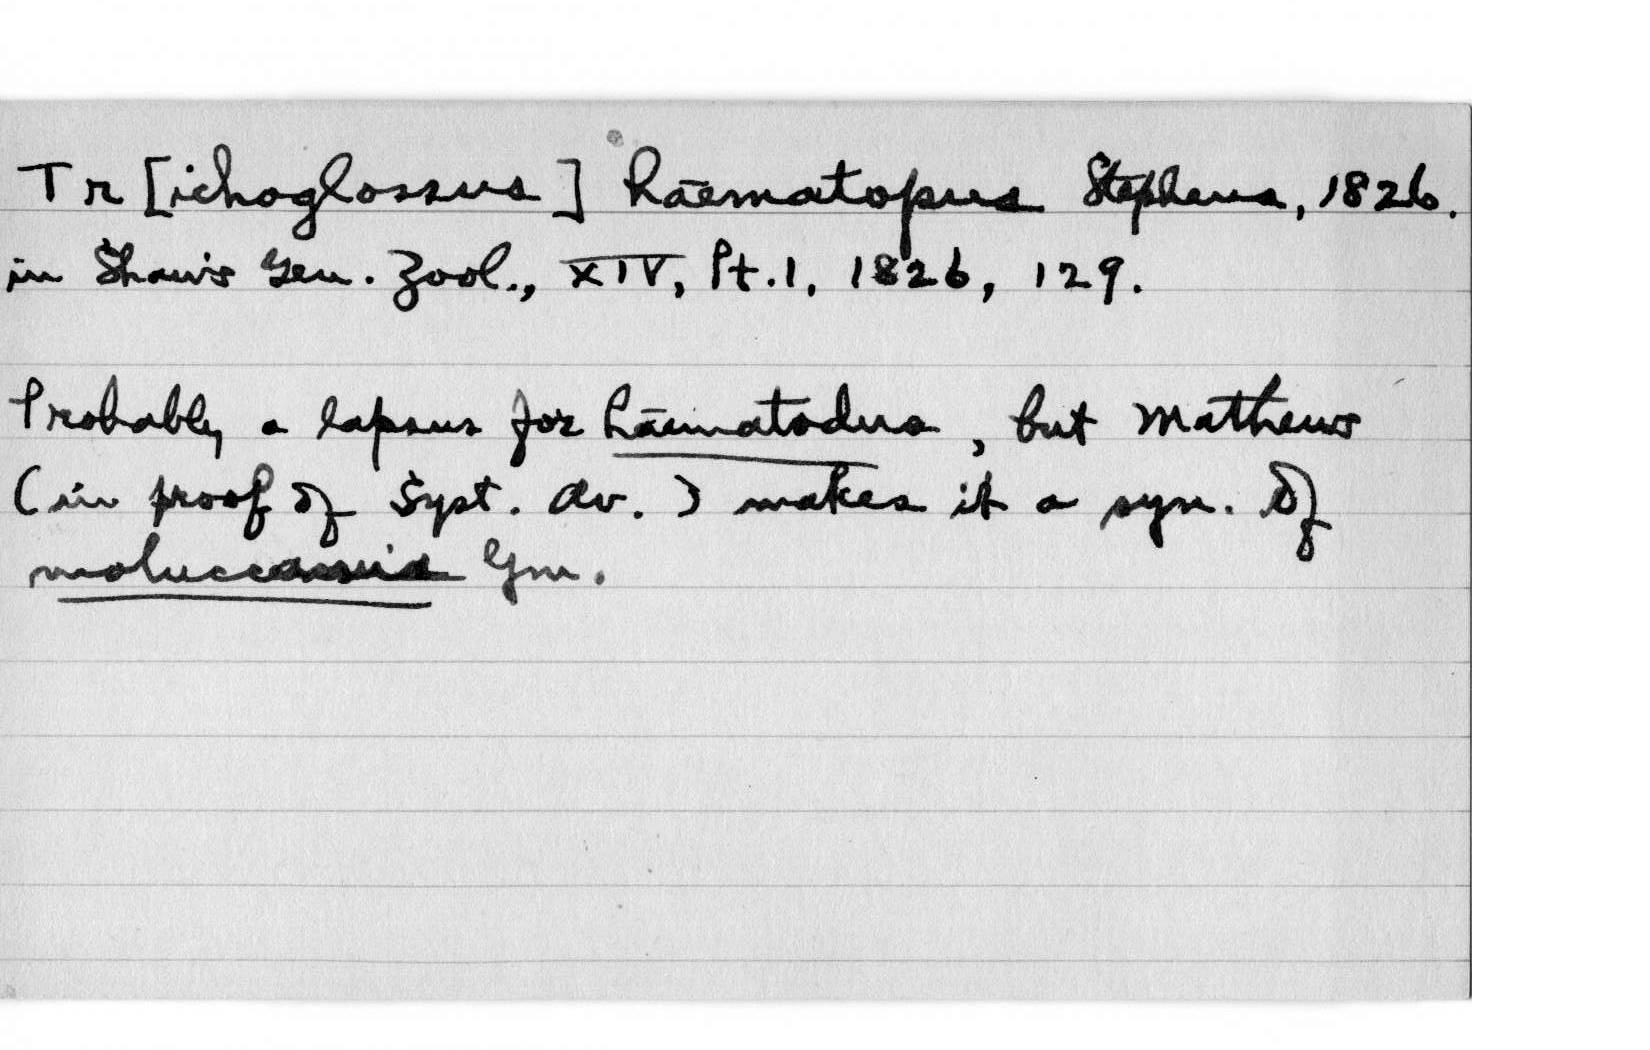 Tr[ichoglossus] haematopus Stephens, 1826.
in Shaw's Gen. Zool., XIV, Pt. 1, 1826, 129.
Probably a lapsus for haematodus, but Mathews
(in proof of Syst. Av.) makes it a syn. of
moluccanus Gm.